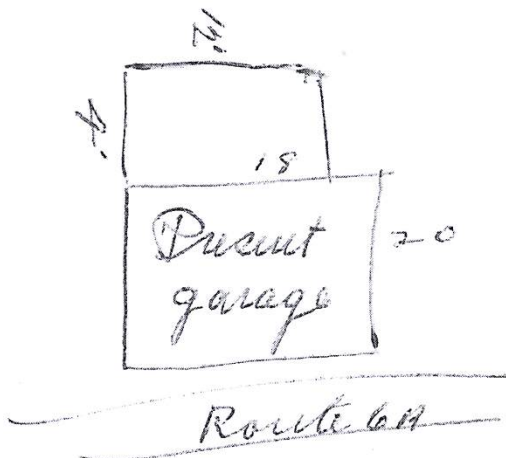 12'
4'
18
Present
garage
20
Route 6A